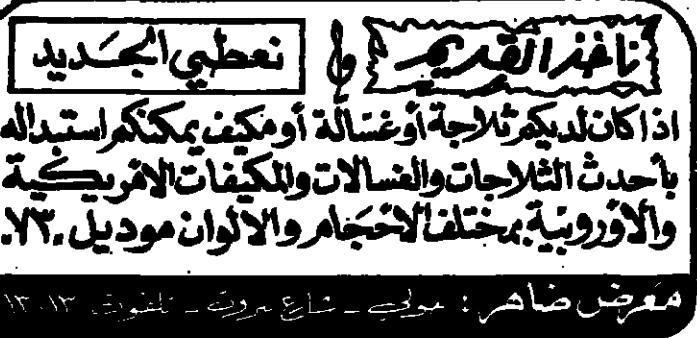 نأخذ القديم و نعطي الجديد
اذا كان لديكم ثلاجة أو غسالة أو مكيف يمكنكم استبداله
بأحدث الثلاجات والغسالات والمكيفات الامريكية
والأوروبية بمختلف الاحجام والالوان موديل ٧٣.
معرض ضاهر : حولي - شارع بيروت - تلفون